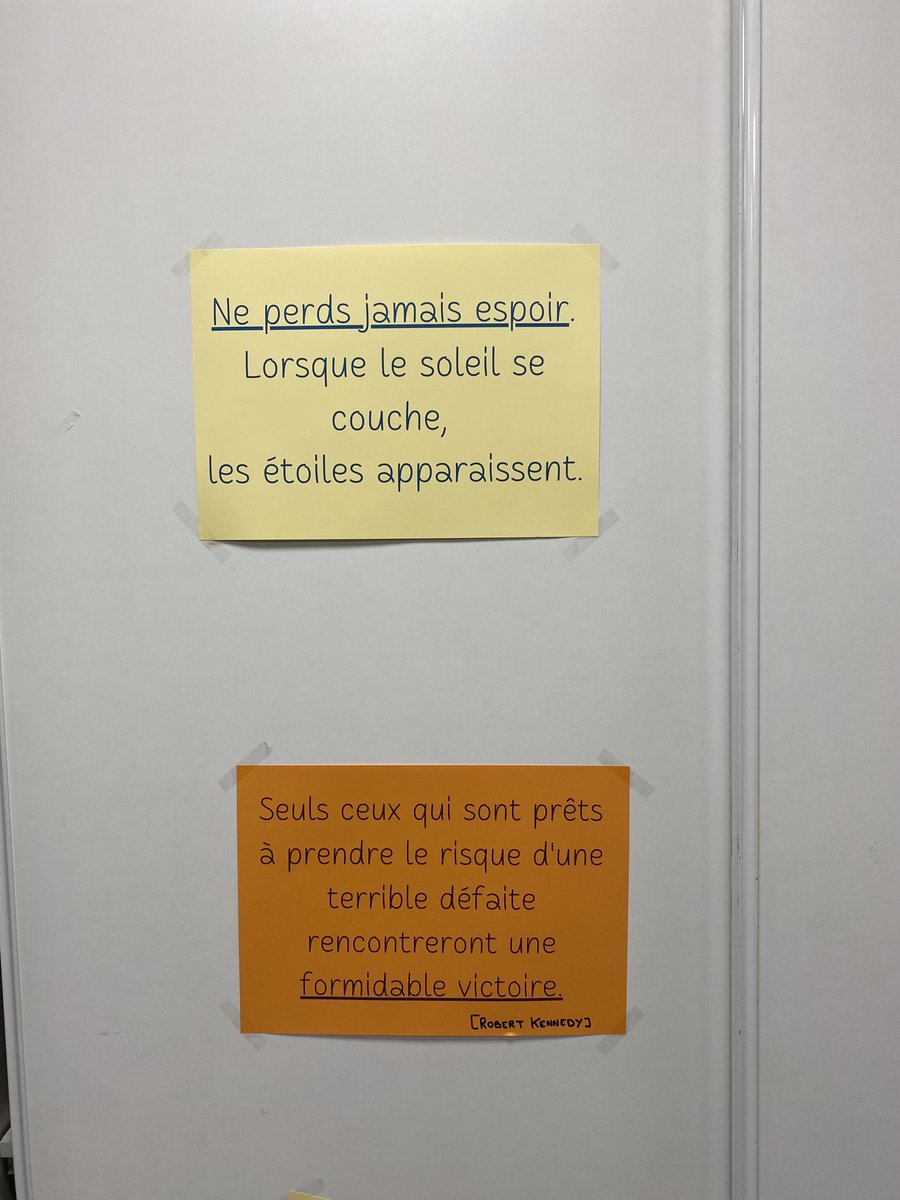 Ne perds jamais espoir.
Lorsque le soleil se
couche,
les étoiles apparaissent.
Seuls ceux qui sont prêts
à prendre le risque d'une
terrible défaite
rencontreront une
formidable victoire.
[ROBERT KENNEDY]